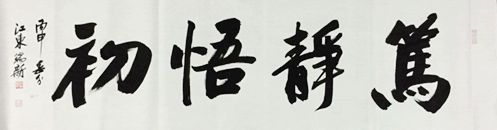 篤靜悟初
丙申
江東